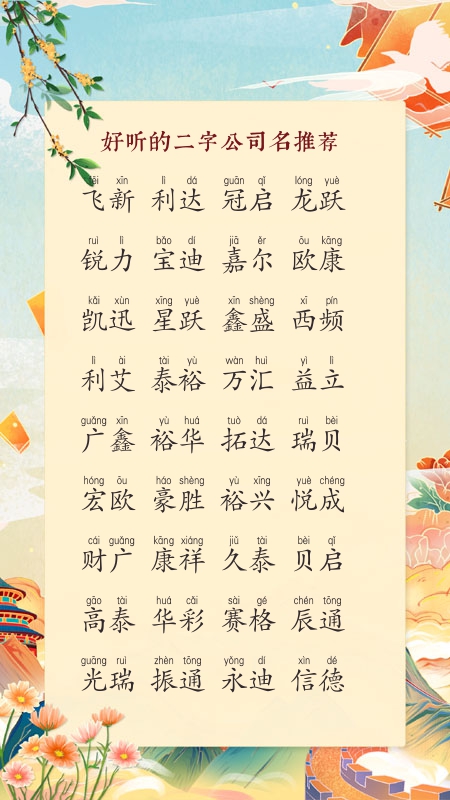 好听的二字公司名推荐
fēi xīn lì dá guān qǐ lóng yuè
飞新 利达 冠启 龙跃
ruì lì bǎo dí jiā ěr ōu kāng
锐力 宝迪 嘉尔 欧康
kǎi xùn xīng yuè xīn shèng xī pín
凯迅 星跃 鑫盛 西频
lì ài tài yù wàn huì yì lì
利艾 泰裕 万汇 益立
guǎng xīn yù huá tuò dá ruì bèi
广鑫 裕华 拓达 瑞贝
hóng ōu háo shèng yù xīng yuè chéng
宏欧 豪胜 裕兴 悦成
cái guǎng kāng xiáng jiǔ tài bèi qǐ
财广 康祥 久泰 贝启
gāo tài huá cǎi sài gé chén tōng
高泰 华彩 赛格 辰通
guāng ruì zhèn tōng yǒng dí xìn dé
光瑞 振通 永迪 信德